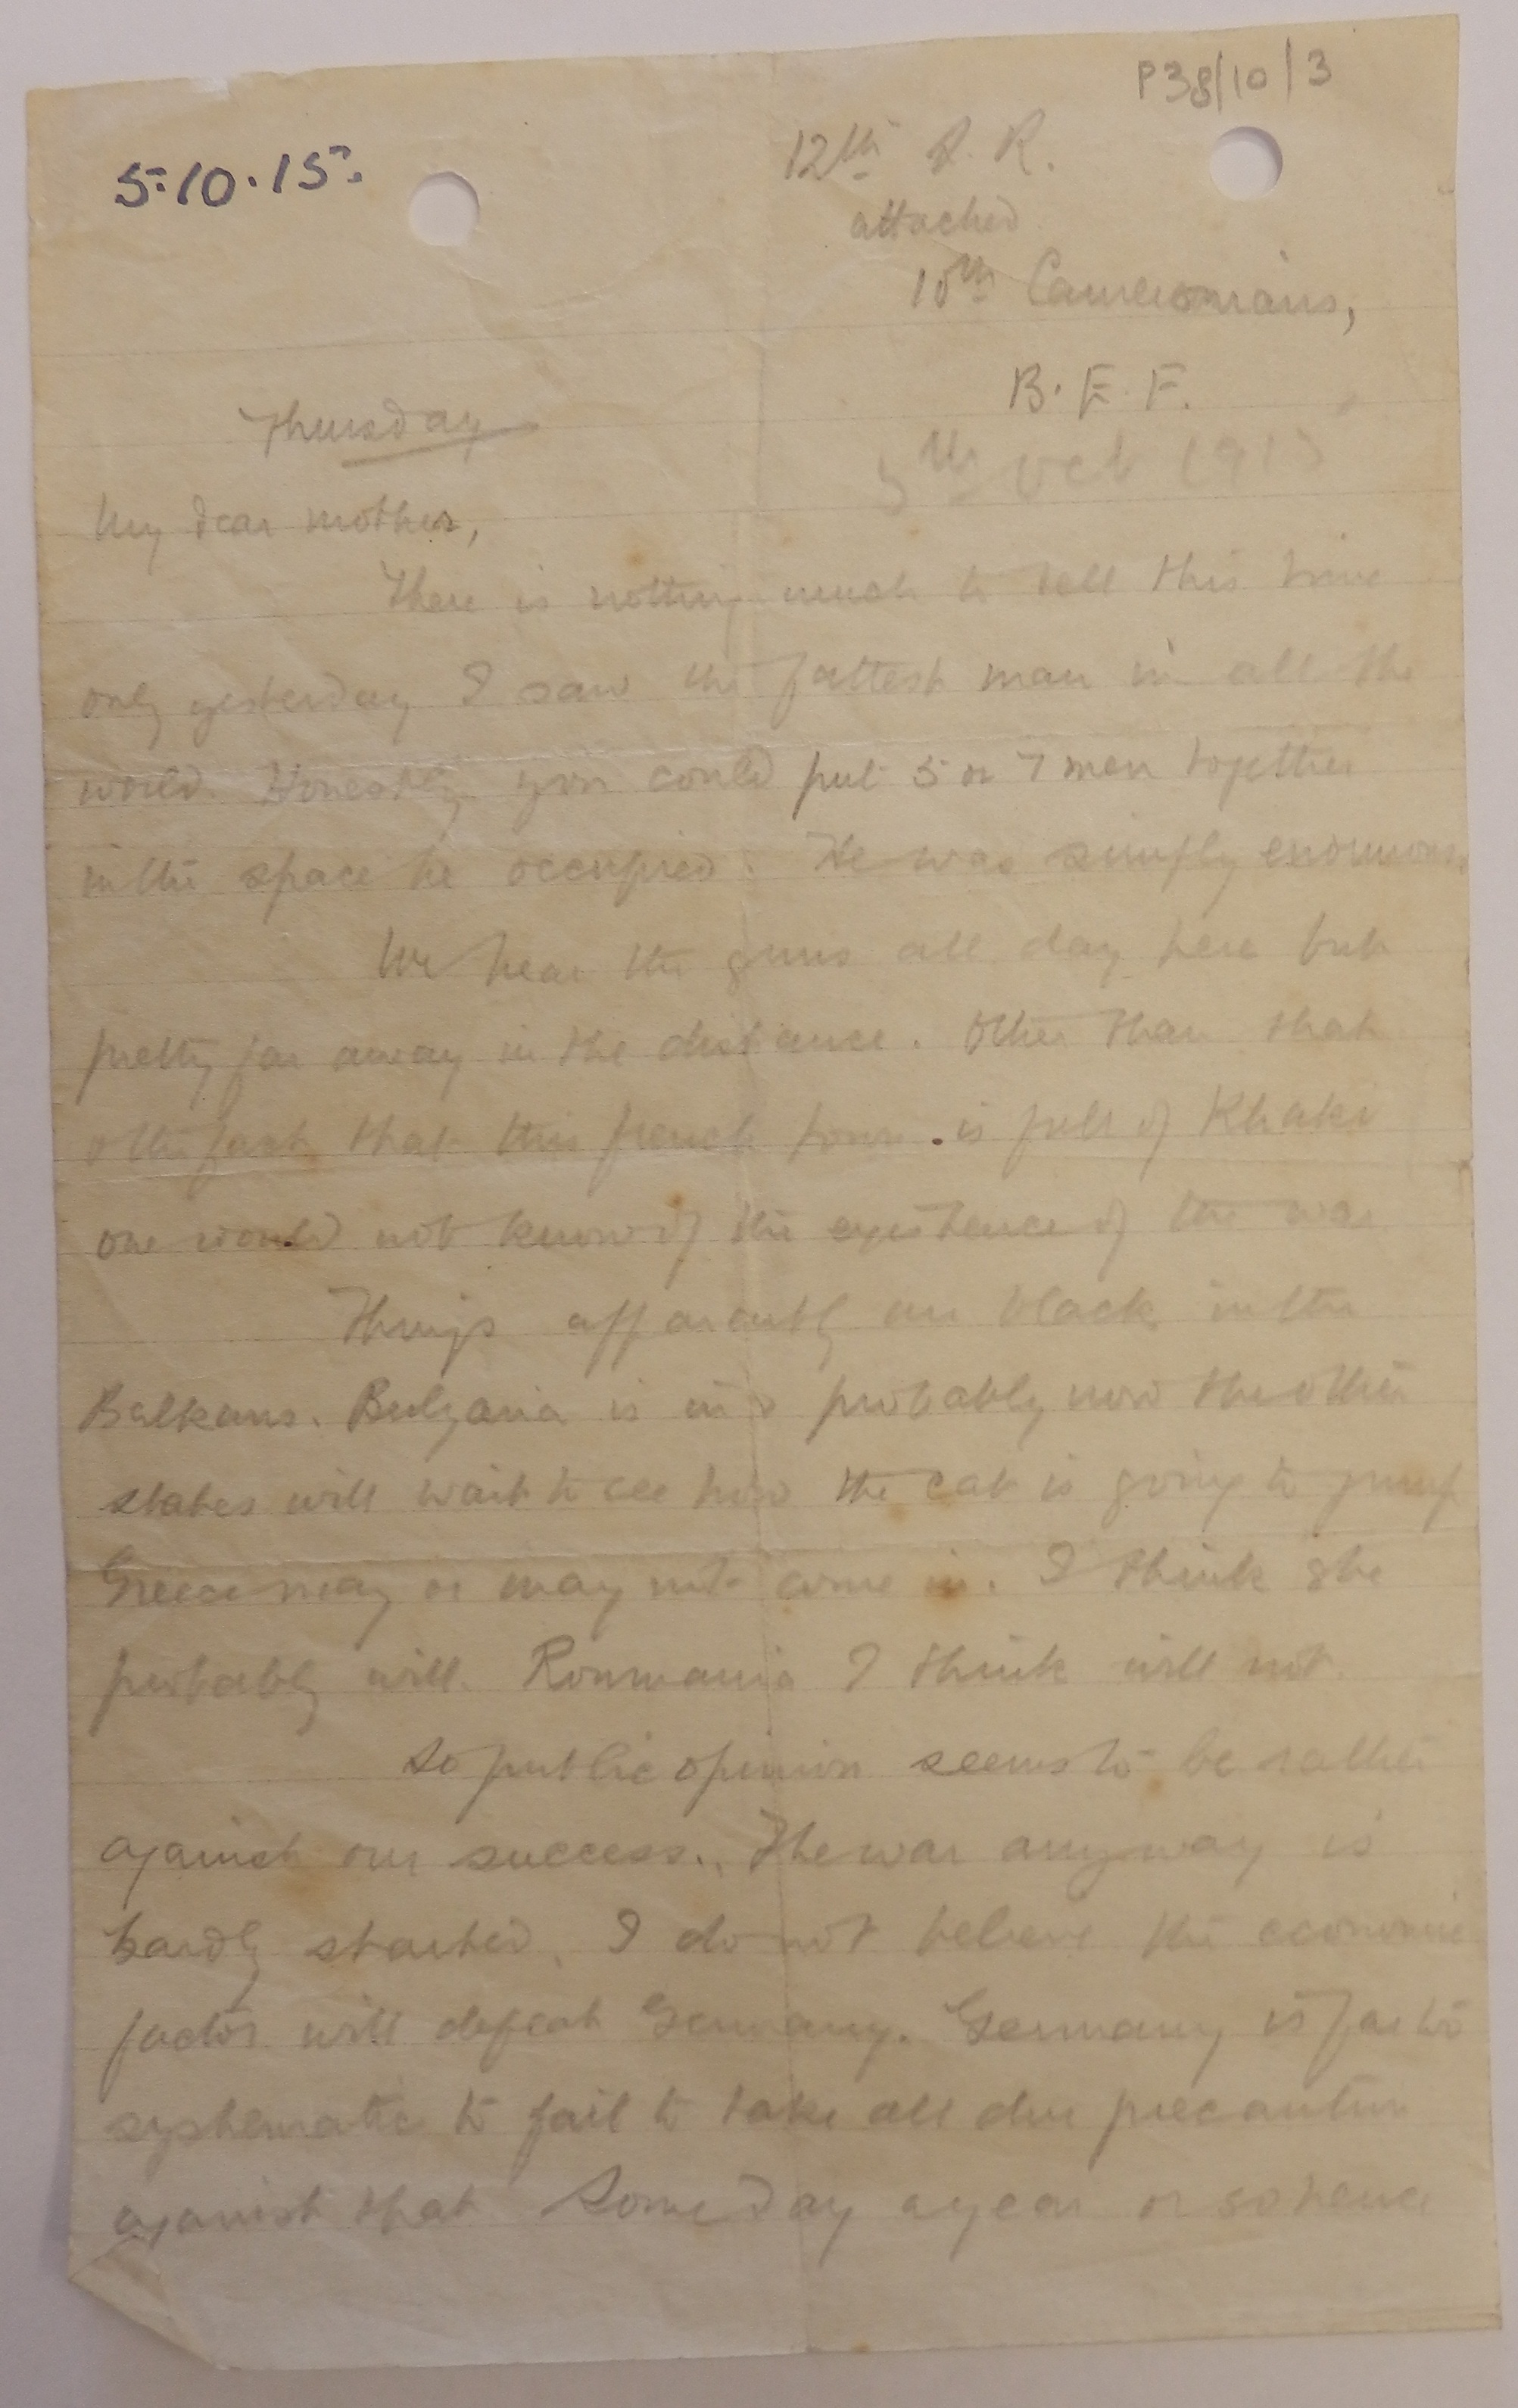 P38/10/3
5.10.15.
12th S. R.
attached
10th Cameronians,
B. E. F.
Thursday
5th Oct 1915
My dear mother,
There is nothing much to tell this time
only yesterday I saw the fattest man in all the
world. Honestly you could put 5 or 7 men together
in the space he occupied. He was simply enormous.
We hear the guns all day here but
pretty far away in the distance. Other than that
& the fact that this french town is full of Khaki
one would not know of the existence of the war
Things apparantly are black in the
Balkans. Bulgaria is in & probably now the other
states will wait to see how the cat is going to jump
Greece may or may not come in. I think she
probably will. Roumania I think will not.
So public opinion seems to be rather
against our success. The war anyway is
hardly started. I do not believe the economic
factor will defeat Germany. Germany is far to
systematic to fail to take all due precaution
against that Some day a year or so hence